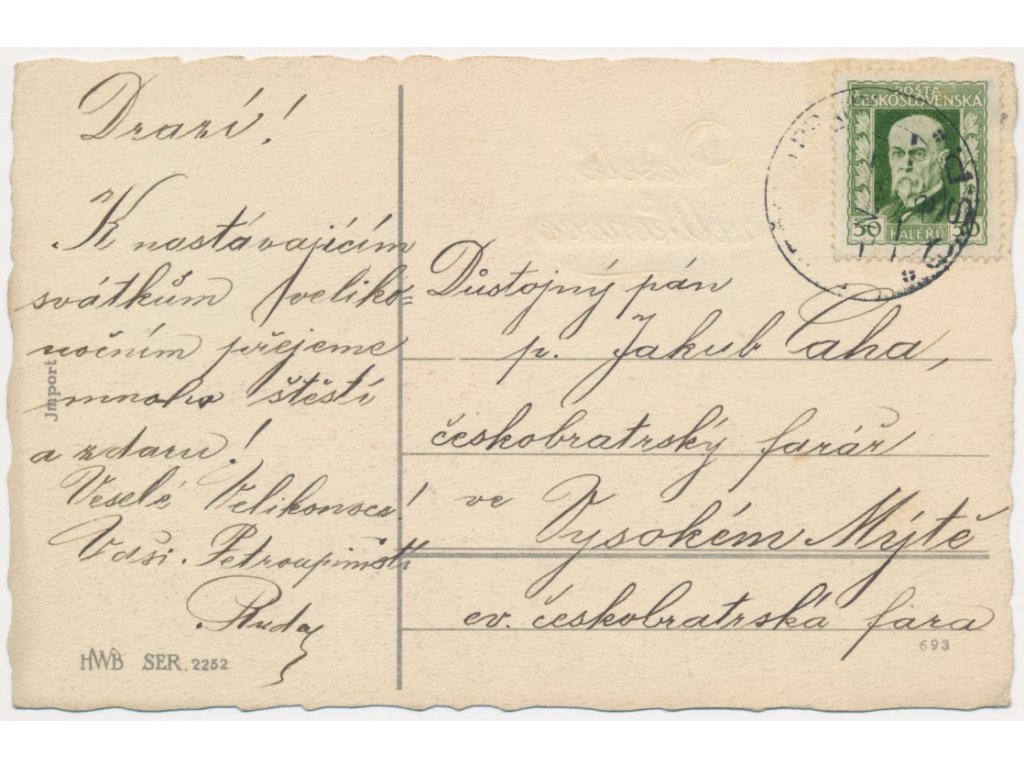 Drazí!
K nastávajícím
svátkům veliko-
nočním přejeme
mnoho štěstí
a zdaru!
Veselé Velikonoce!
Vaši
Ruda
Jmport
HWB SER. 2252
POŠTA
ČESKOSLOVENSKÁ
50 HALÉŘŮ 50
Č.S.P.
Důstojný pán
p. Jakub Caha,
českobratrský farář
ve Vysokém Mýtě
ev. českobratrská fara
693